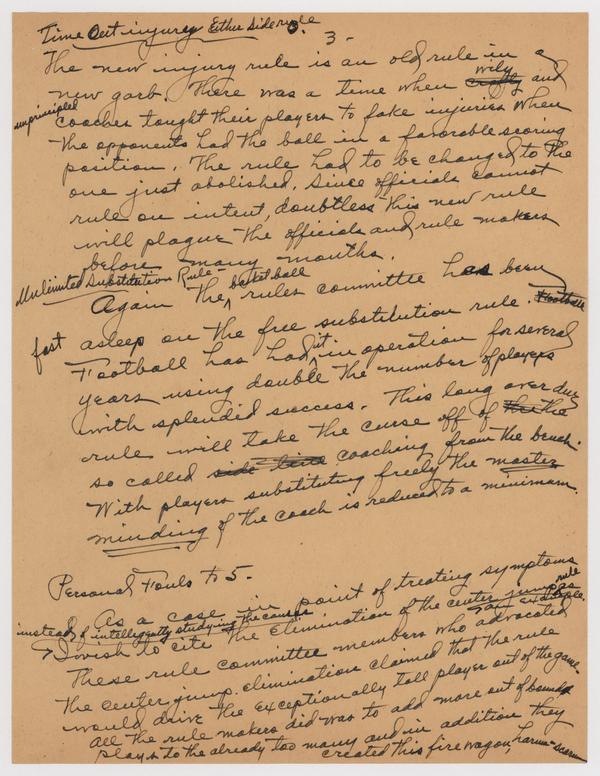 Time Out injury Either Side rule
3-
The new injury rule is an old rule in a
new garb. There was a time when crafty wily and
unprincipled
coaches tought their players to fake injuries when
the opponents had the ball in a favorable scoring
position. The rule had to be changed to the
one just abolished. Since officials cannot
rule on intent, doubtless this new rule
will plague the officials and rule makers
before many months.
Unlimited Substitution Rule-
Again the basketball rules committee has been
fast asleep on the free substitution rule. Football
Football has had it in operation for several
years using double the number of players
with splendid success. This long over due
rule will take the curse off of the the
so called side line coaching from the bench.
With players substituting freely the master
minding of the coach is reduced to a minimum.
Personal Fouls to 5.
As a case in point of treating symptoms
instead of intelligently studying the causes
I wish to cite the elimination of the center jump rule as an example.
These rule committee members who advocated
the center jump elimination claimed that the rule
would drive the exceptionally tall player out of the game.
All the rule makers did was to add more out of bounds
plays to the already too many and in addition they
created this fire wagon, harum-scarum